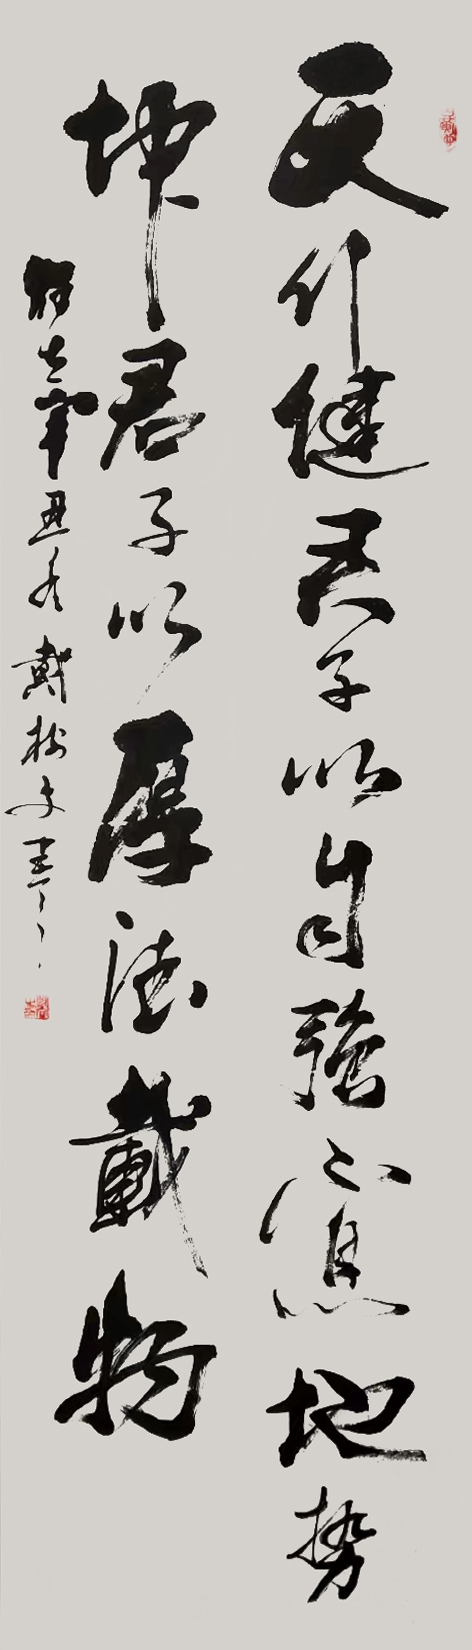 天行健君子以自强不息地势
坤君子以厚德载物
辛丑冬戴树文书